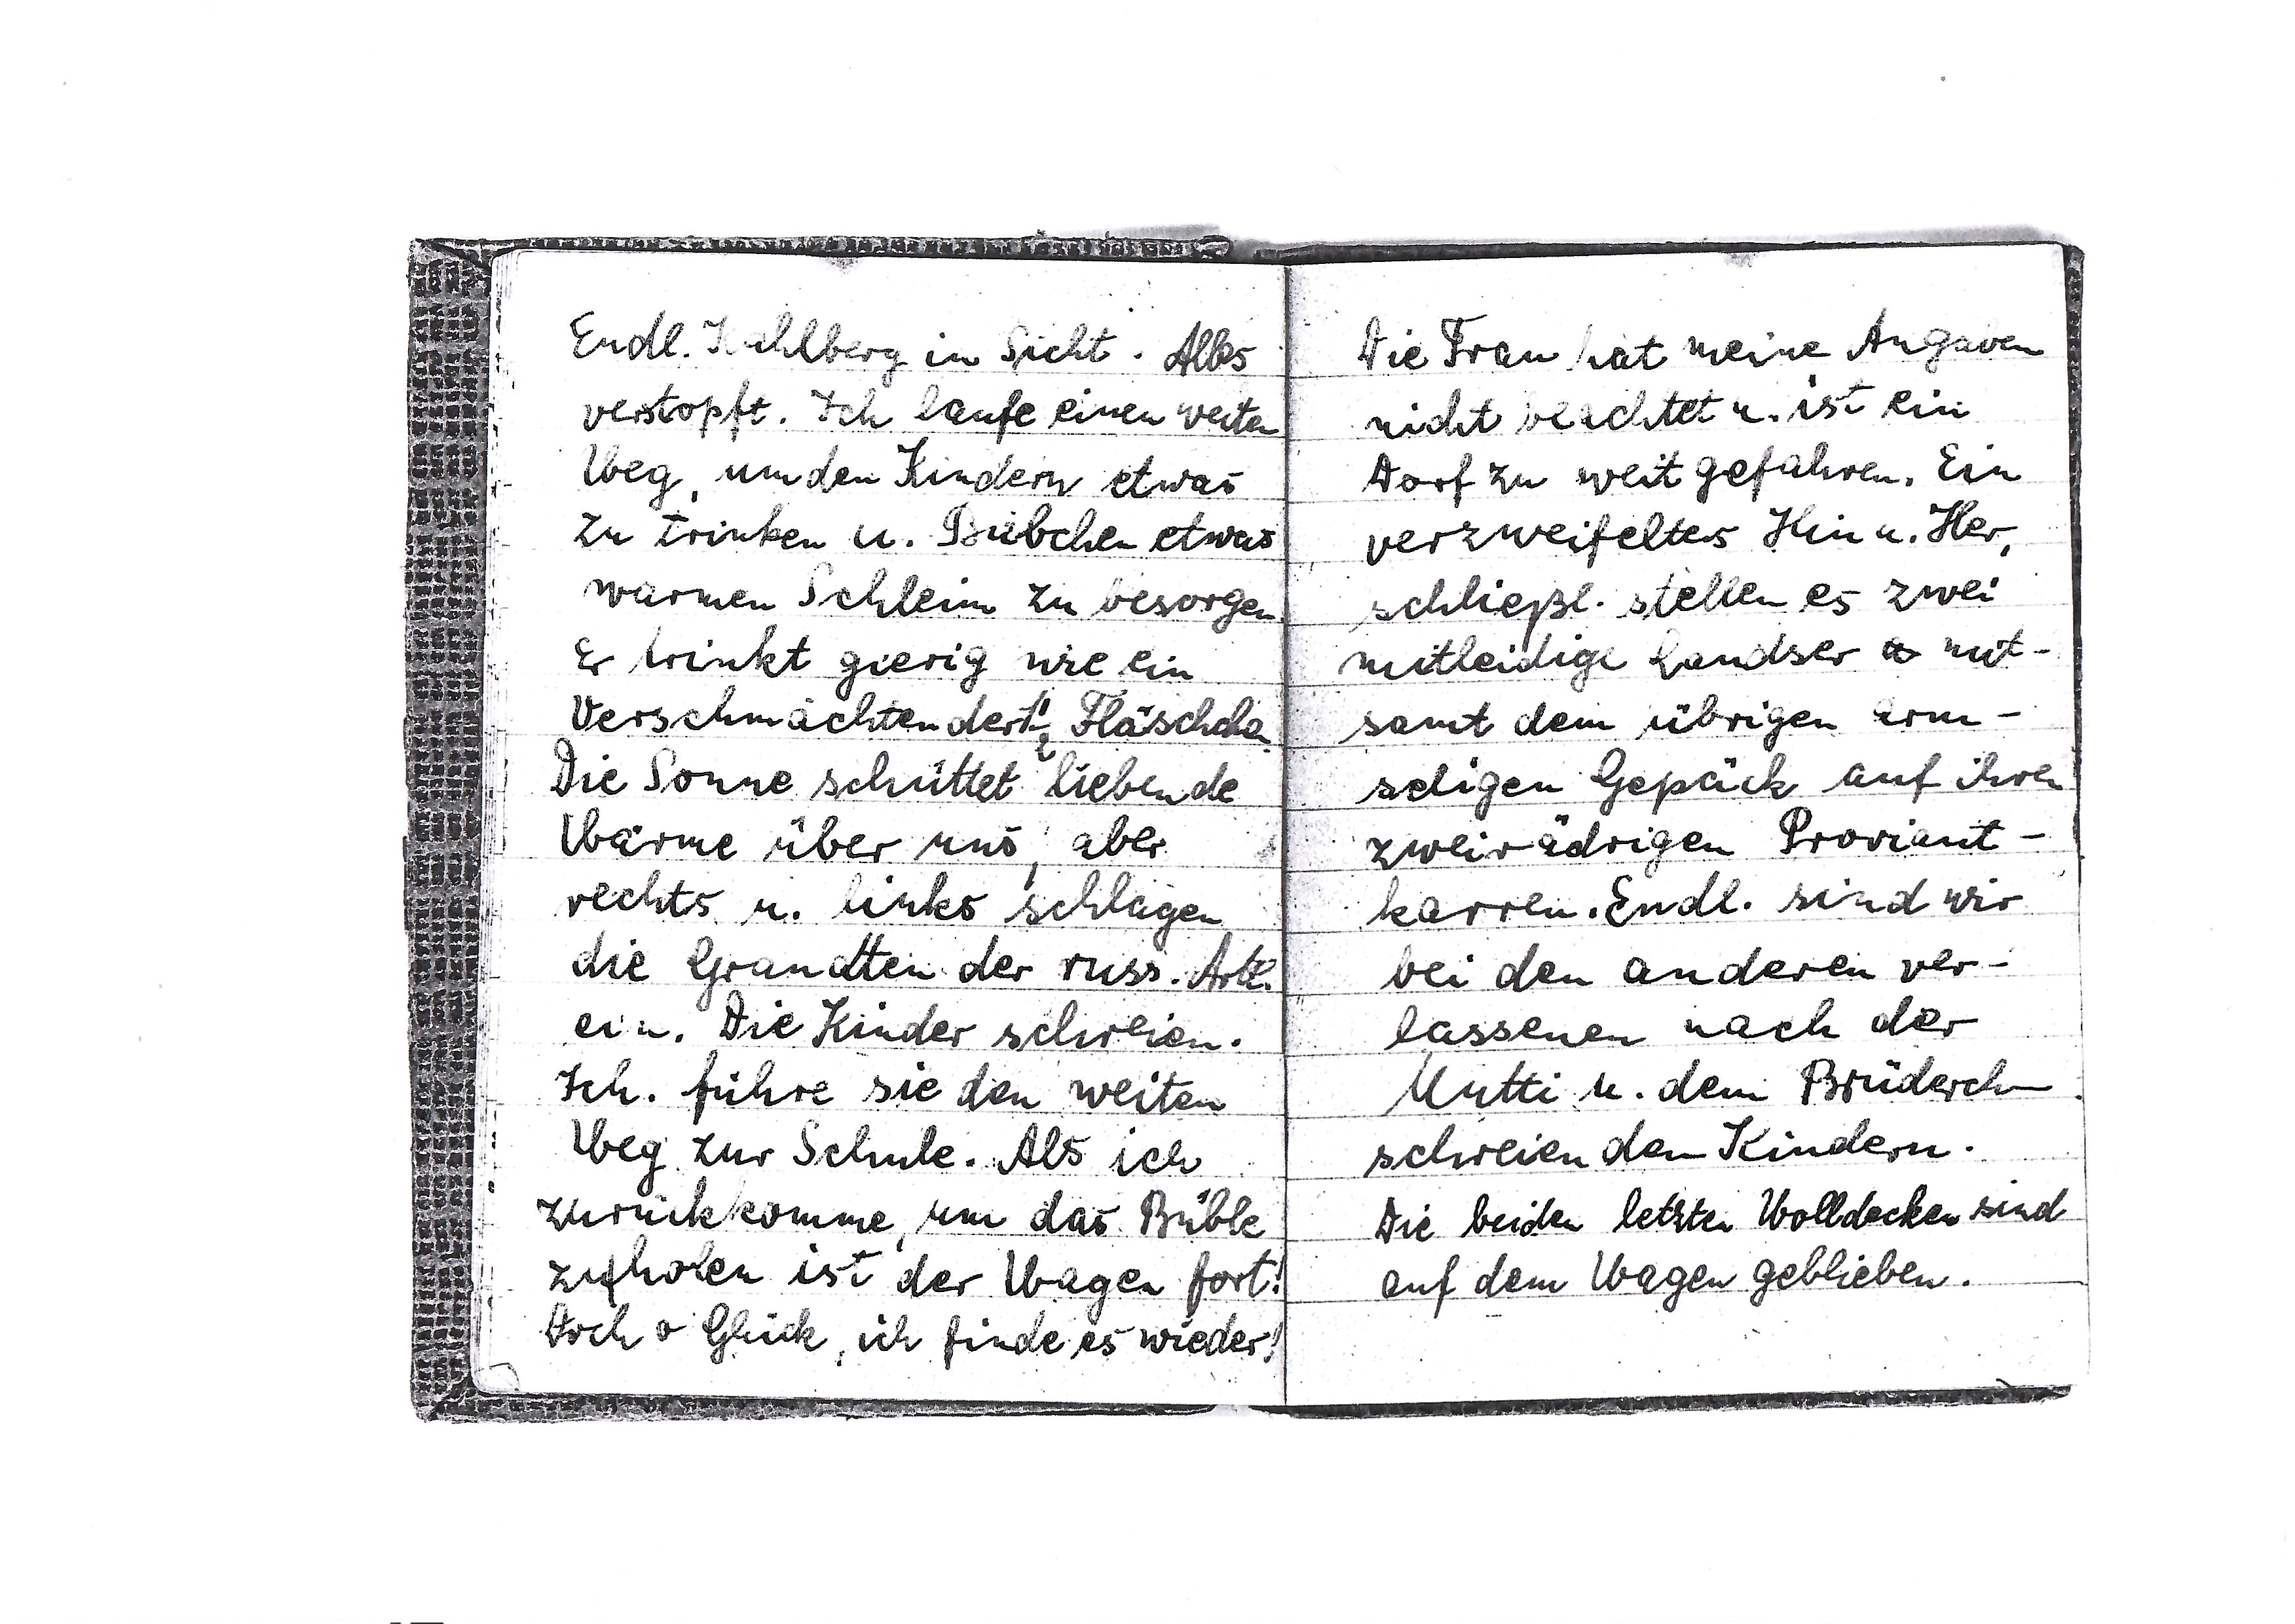 Endl. Kahlberg in Sicht. Alles
verstopft. Ich laufe einen weiten
Weg, um den Kindern etwas
zu trinken u. Bübchen etwas
warmen Schleim zu besorgen.
Er trinkt gierig wie ein
Verschmachtender! Fläschchen
Die Sonne schüttet liebende
Wärme über uns, aber
rechts u. links schlagen
die Granatten der russ. Artl.
ein. Die Kinder schreien.
Ich. führe sie den weiten
Weg zur Schule. Als ich
zurückkomme, um das Büble
zu holen ist der Wagen fort!
Doch o Glück, ich finde es wieder!
Die Frau hat meine Angaben
nicht beachtet u. ist ein
Dorf zu weit gefahren. Ein
verzweifeltes Hin u. Her,
schließl. stellen es zwei
mitleidige Landser mit-
samt dem übrigen arm-
seligen Gepäck auf ihren
zweirädrigen Proviant-
karren. Endl. sind wir
bei den anderen ver-
lassenen nach der
Mutti u. dem Brüderch
schreienden Kindern.
Die beiden letzten Wolldecken sind
auf dem Wagen geblieben.